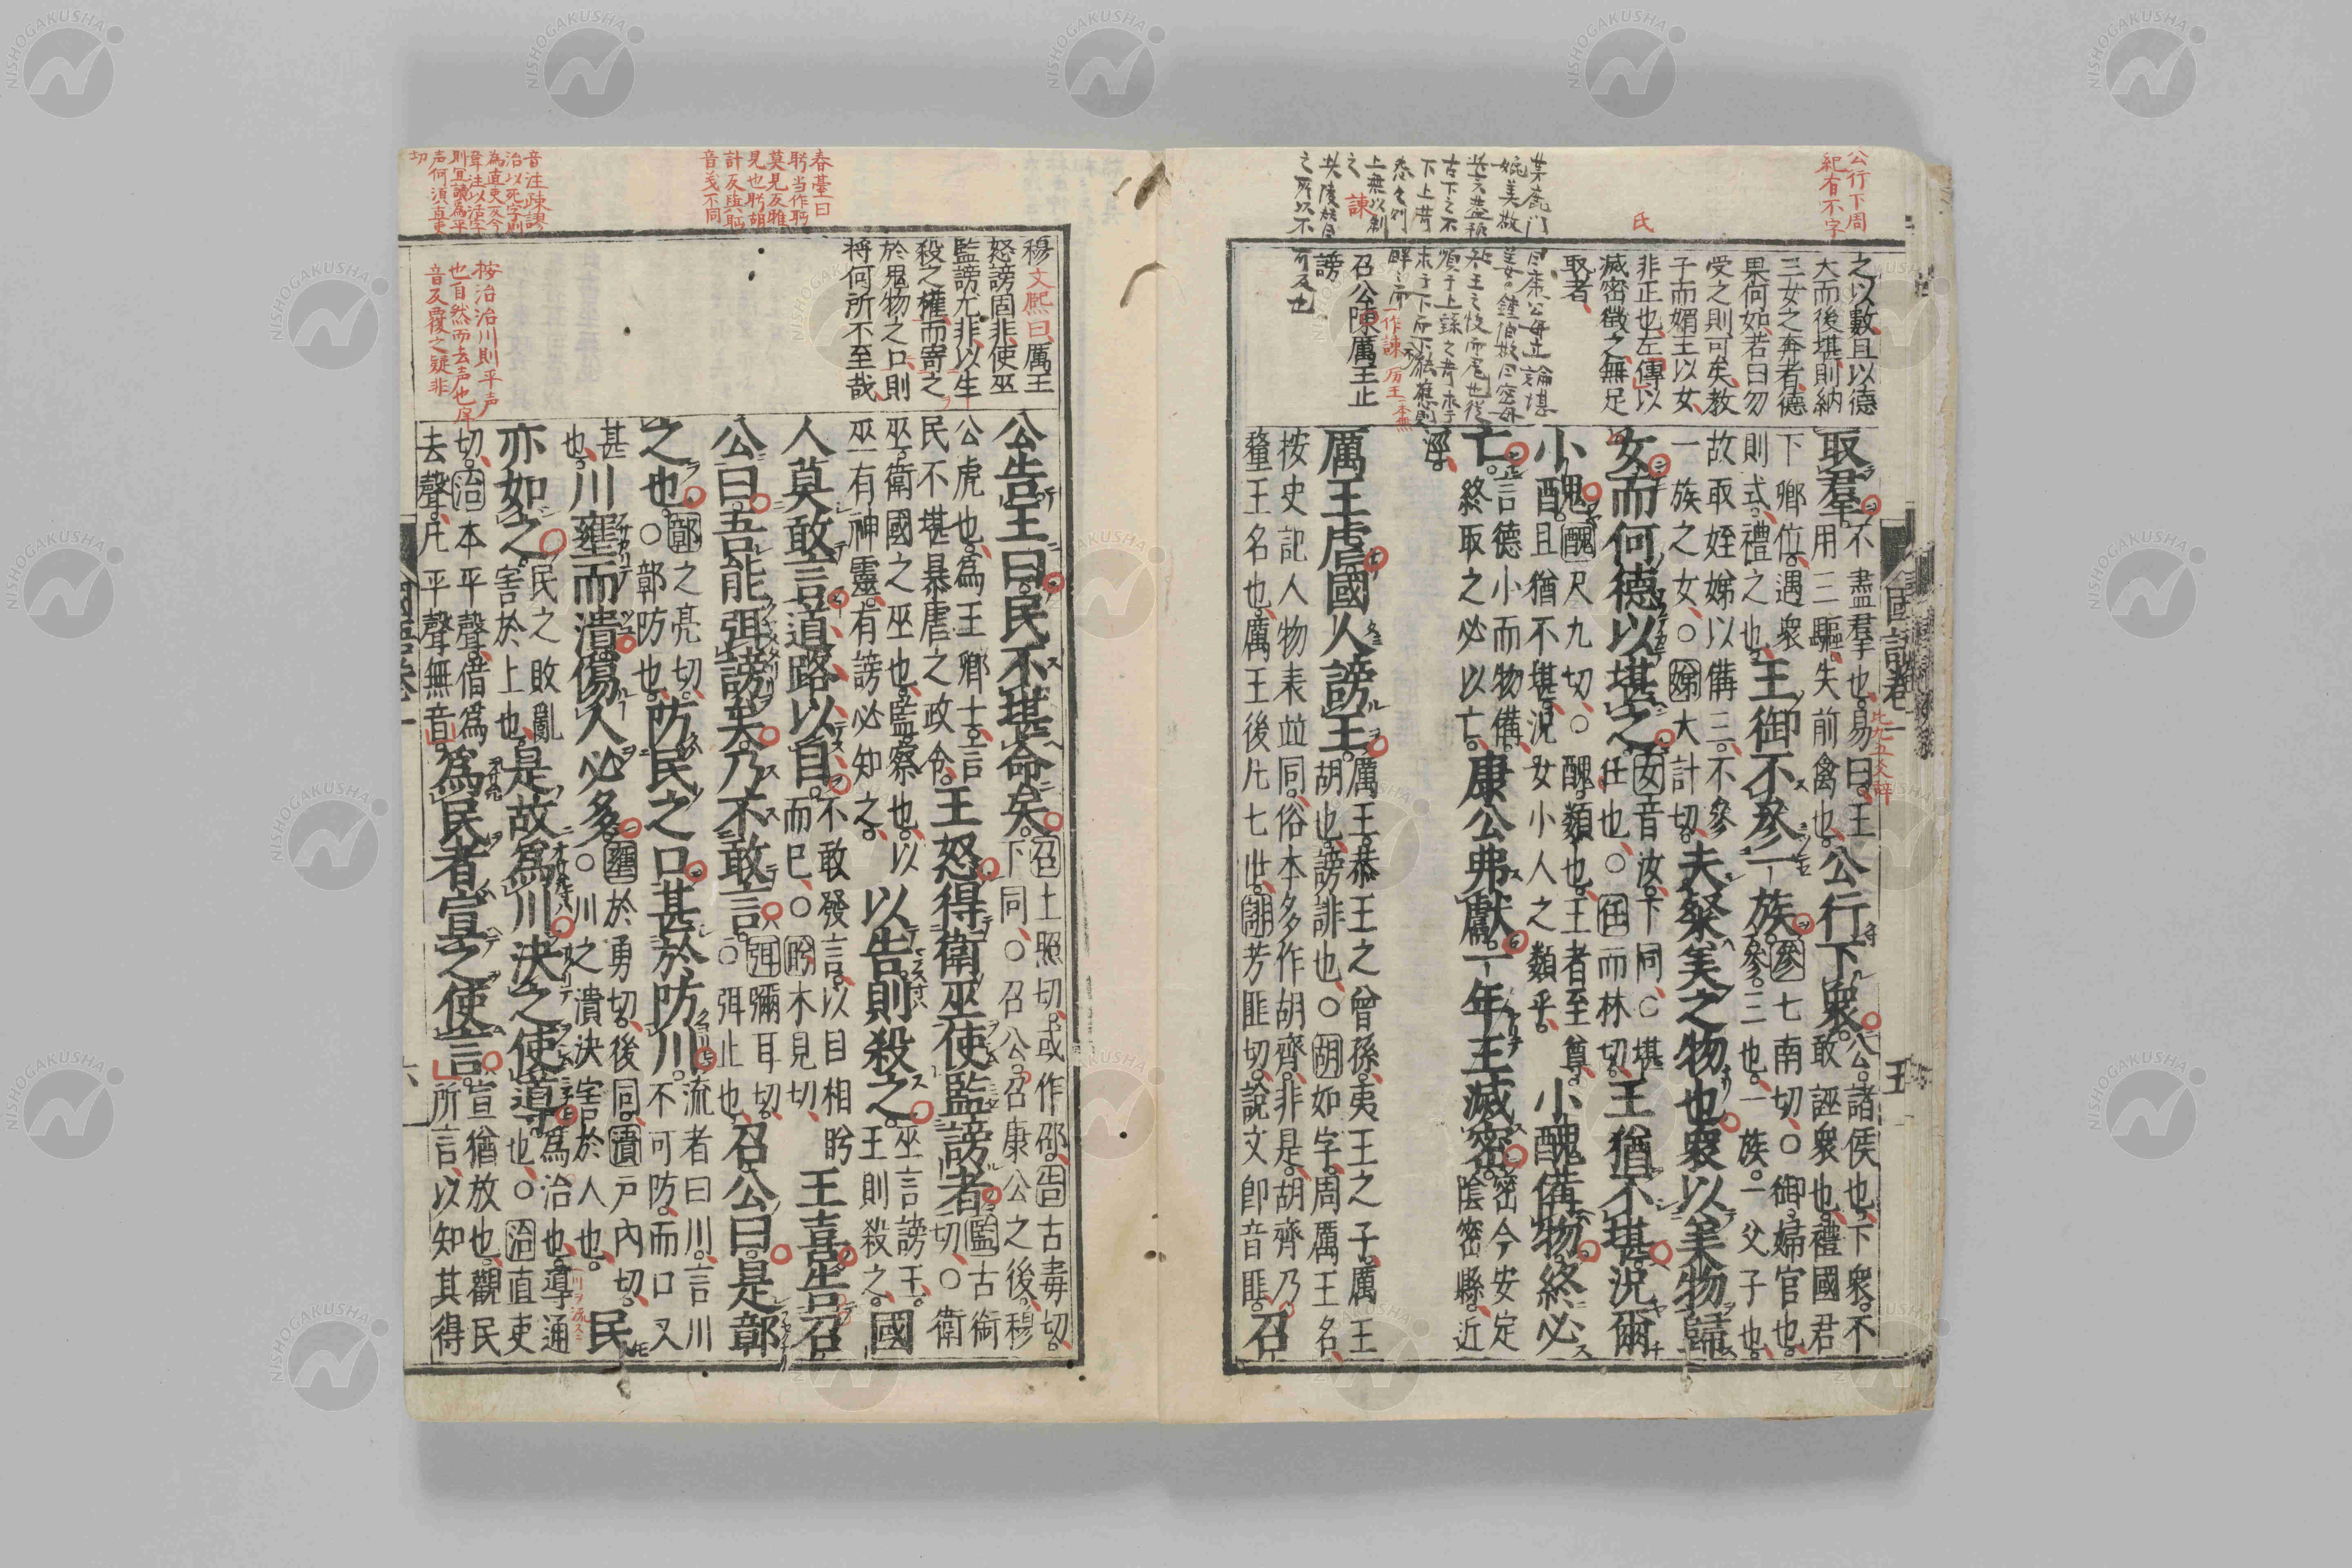 公行下周
紀有不字
氏
之以數且以德
大而後堪則納
三女之奔者德
果何如若曰勿
受之則可矣教
子而媚王以女
非正也左傳以
滅密徵之無足
取者
諫
召公陳厲王止
謗
一作諫 厉王一本無
國語卷一
五
取羣。不盡羣也。易曰。王用三驅。失前禽也。公行下衆。公。諸侯也。下衆。不敢誣衆也。禮。國君
下卿位。遇衆則式。禮之也。王御不參一族。參七南切。○御。婦官也。參。三也。一族。一父子也。
故取姪娣以備三。不參一族之女。○娣大計切。夫粲美之物也衆以美物歸
女而何德以堪之。女音汝。下同。○堪任也。○任而林切。王猶不堪。況爾
小醜。醜尺九切。○醜。類也。王者至尊。且猶不堪。況女小人之類乎。小醜備物。終必
亡。言德小而物備。終取之必以亡。康公弗獻。一年王滅密。密今安定陰密縣。近
涇。
厲王虐。國人謗王。厲王。恭王之曾孫。夷王之子。厲王胡也。謗。誹也。○胡如字。周厲王名。
按史記人物表並同。俗本多作胡齊。非是。胡齊乃釐王名也。厲王後凡七世。誹芳匪切。說文卽音匪。召
春臺曰
眄当作眄
莫見反雅
見也盻胡
計反與眄
音義不同
音注疎謬
治以死字則
為直吏反今
韋注以活字
則宜讀為平
声何須直吏
切
穆文熙曰厲王
怒謗固非使巫
監謗尤非以生
殺之權而寄之
於鬼物之口則
将何所不至哉
按治治川則平声
也自然而去声也岸
音反覆之疑非
公告王曰。民不堪命矣。召土照切。或作邵。告古毒切。下同。○召公。召康公之後。穆
公虎也。爲王卿士。言民不堪暴虐之政令。王怒得衛巫使監謗者。監古銜切。○衛
巫。衛國之巫也。監。察也。以巫有神靈。有謗必知之。以告則殺之。巫言謗王。王則殺之。國
人莫敢言道路以目。不敢發言。以目相眄而已。○眄木見切。王喜告召
公曰。吾能弭謗矣。乃不敢言。弭彌耳切。○弭止也。召公曰。是鄣
之也。鄣之亮切。○鄣防也。防民之口甚於防川。流者曰川。言川不可防。而口又
甚也。川壅而潰傷人必多。壅於勇切。後同。潰戶內切。○川之潰決害於人也。民
亦如之。民之敗亂害於上也。是故爲川決之使導。爲治也。導通也。○治直吏
切。治本平聲。借爲去聲。凡平聲無音。爲民者宣之使言。宣猶放也。觀民所言。以知其得
六